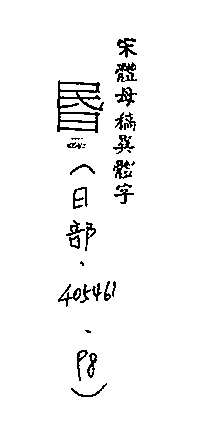 宋體母稿異體字
昬（日部．405461．P8）